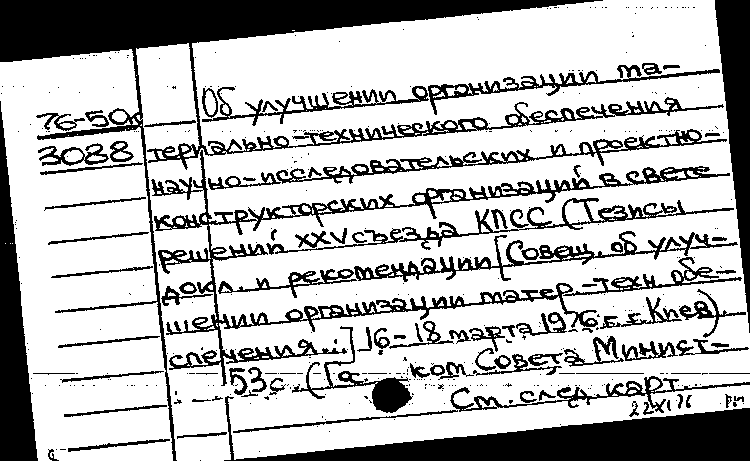 Об улучшении организации ма-
76-50к
3088 териально-технического обеспечения
научно-исследовательских и проектно-
конструкторских организаций в свете
решений XXV съезда КПСС (Тезисы
докл. и рекомендации [Совещ. об улуч-
шении организации матер.-техн. обе-
спечения...] 16-18 марта 1976 г. г. Киев).
53 с. (Гос ком. Совета Минист-
См. след. карт.
22 XI 76